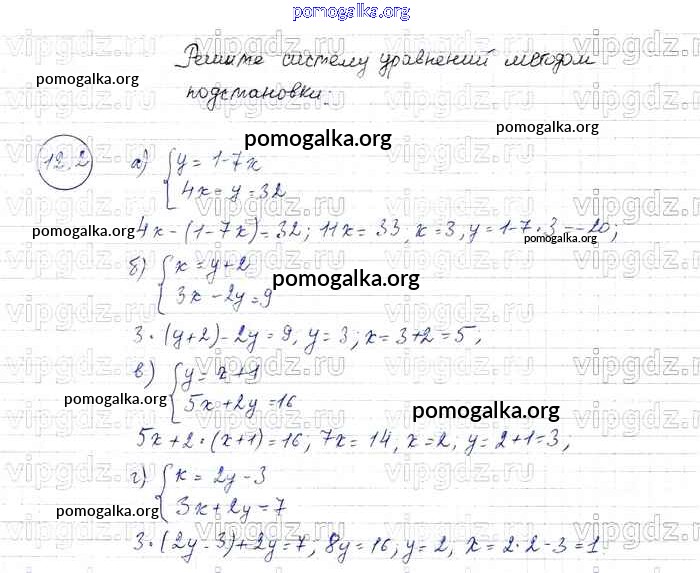 pomogalka.org
Решите систему уравнений методом
подстановки.
12.2 а) { y = 1-7x
4x = y = 32
4x - (1-7x) = 32; 11x = 33, x = 3, y = 1-7·3 = -20;
б) { x = y+2
3x - 2y = 9
3·(y+2) - 2y = 9, y = 3; x = 3+2 = 5;
в) { y = x+1
5x + 2y = 16
5x + 2·(x+1) = 16, 7x = 14, x = 2, y = 2+1 = 3,
г) { x = 2y - 3
3x + 2y = 7
3·(2y-3) + 2y = 7, 8y = 16, y = 2, x = 2·2-3 = 1
pomogalka.org
pomogalka.org
pomogalka.org
pomogalka.org
pomogalka.org
pomogalka.org
pomogalka.org
pomogalka.org
vipgdz.ru